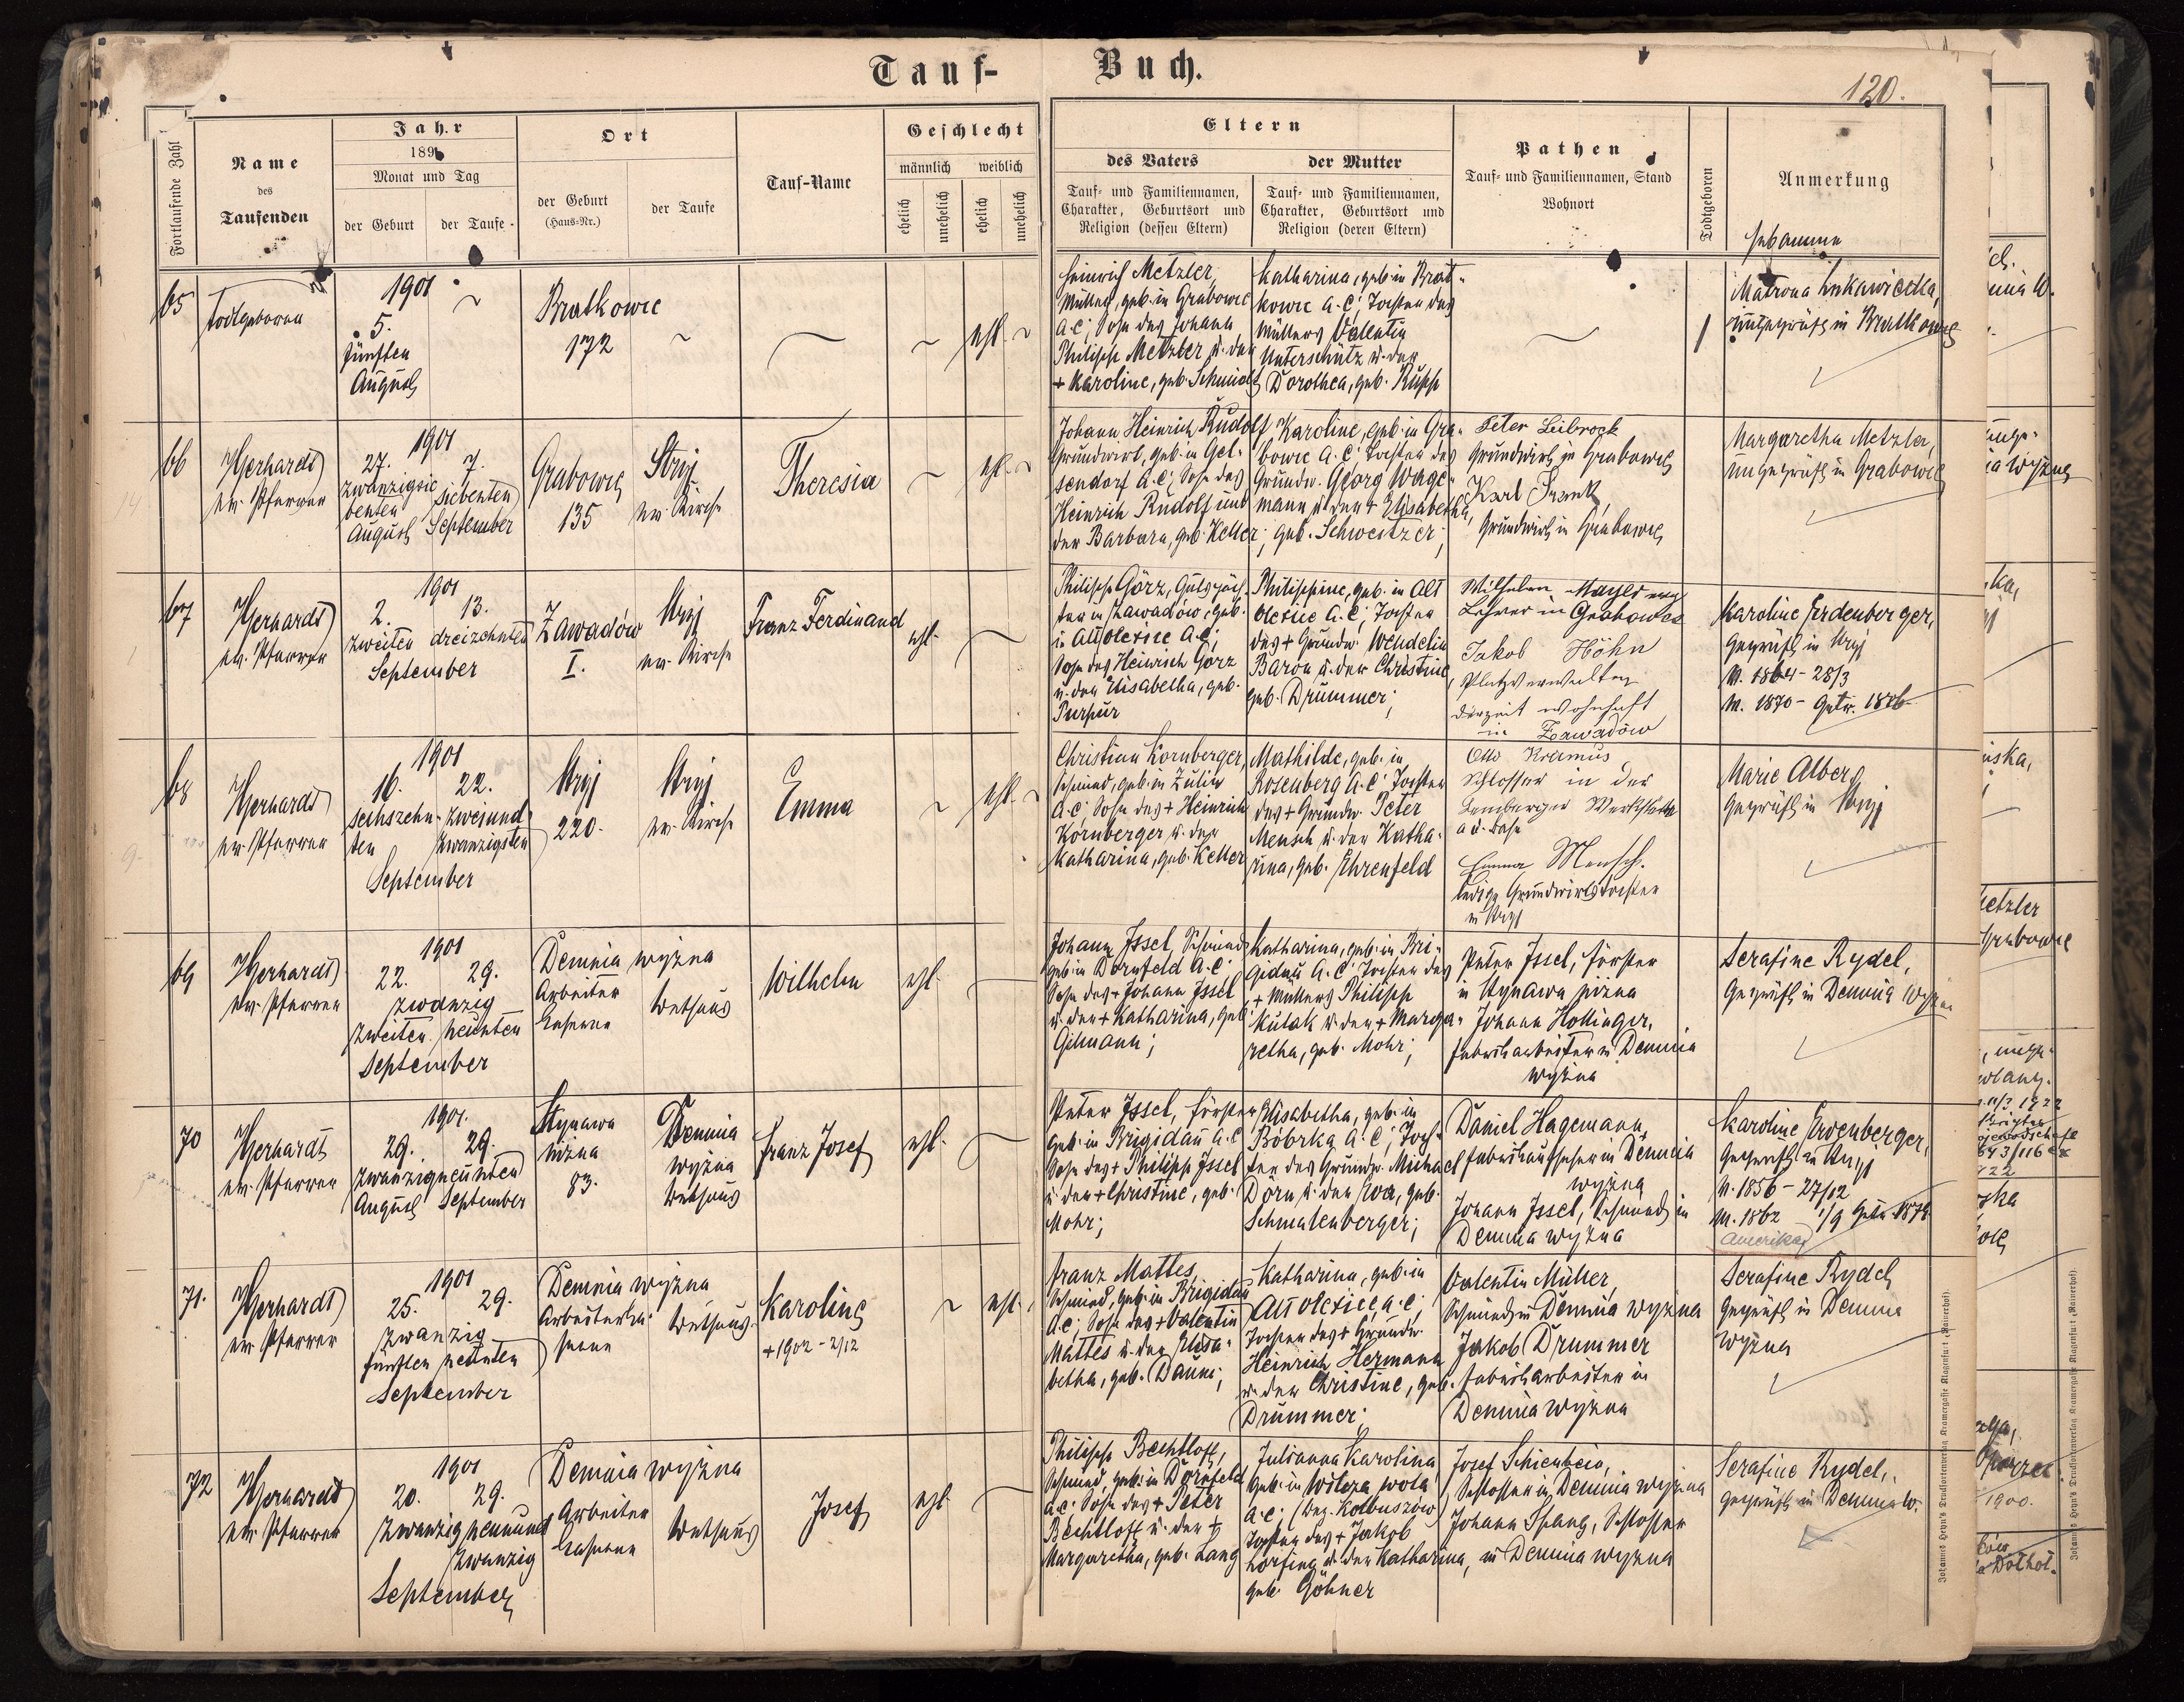 Tauf-Buch.
120.
Fortlaufende Zahl
Name
des
Taufenden
Jahr
189
Monat und Tag
der Geburt
der Taufe
Ort
der Geburt
(Haus-Nr.)
der Taufe
Tauf-Name
Geschlecht
männlich
weiblich
ehelich
unehelich
ehelich
unehelich
Eltern
des Vaters
Tauf- und Familiennamen,
Charakter, Geburtsort und
Religion (dessen Eltern)
der Mutter
Tauf- und Familiennamen,
Charakter, Geburtsort und
Religion (deren Eltern)
Pathen
Tauf- und Familiennamen, Stand
Wohnort
Todtgeboren
Anmerkung
Hebamme
65
Todtgeboren
1901
5.
fünften
August
Bratkowce
172
ehl.
Heinrich Metzler,
Müller, geb. in Grabowce
A.C; Sohn des Johann
Philipp Metzler u. der
+ Karoline, geb. Schmidt
Katharina, geb. in Brat-
kowce A.C; Tochter des
Müllers Valentin
Unterschütz u. der
Dorothea, geb. Rupp
1
Matrona Lukawiecka,
ungeprüft in Bratkowce
66
HGerhardt
ev. Pfarrer
1901
27. 7.
zwanzigsie- siebenten
benten
August September
Grabowce
135
Stryj
ev. Kirche
Theresia
ehl.
Johann Heinrich Rudolf
Grundwirt, geb. in Gel-
sendorf A.C; Sohn des
Heinrich Rudolf und
der Barbara, geb. Keller;
Karoline, geb. in Gra-
bowce A.C; Tochter des
Grundw. Georg Wage-
mann u. der + Elisabetha,
geb. Schweitzer;
Peter Leibrock
Grundwirth in Grabowce
Karl Frank,
Grundwirth in Grabowce
Margaretha Metzler,
ungeprüft in Grabowce
67
HGerhardt
ev. Pfarrer
1901
2. 13.
zweiten dreizehnten
September
Zawadów
I.
Stryj
ev. Kirche
Franz Ferdinand
ehl.
Philipp Görz, Gutspäch-
ter in Zawadów, geb.
in Altoleksice A.C;
Sohn des Heinrich Görz
u. der Elisabetha, geb.
Purpur
Philippine, geb. in Alt
Oleksice A.C; Tochter
des + Grundw. Wendelin
Baron u. der Christine,
geb. Drummer;
Wilhelm
Lehrer in Grabowce
Jakob Höhn
Platzverwalter
derzeit wohnhaft
in Zawadów
Karoline Erdenberger,
geprüft in Stryj
N. 1864 - 28/3
M. 1870 - Getr. 1876
68
HGerhardt
ev. Pfarrer
1901
16. 22.
sechszehn- zweiund
ten zwanzigsten
September
Stryj
220.
Stryj
ev. Kirche
Emma
ehl.
Christian Kornberger,
Schmied, geb. in Zulin
A.C; Sohn des + Heinrich
Kornberger u. der
Katharina, geb. Keller
Mathilde, geb. in
Rosenberg A.C; Tochter
des + Grundw. Peter
Mensch u. der Katha-
rina, geb. Ehrenfeld
Otto Kramus
Schlosser in der
Lemberger Werkstätte
a d. Bahn
Emma Mensch.
ledige Grundwirthstochter
in Stryj
Marie Alberg
geprüft in Stryj
69
HGerhardt
ev. Pfarrer
1901
22. 29.
zwanzig
zweiten neunten
September
Demnia wyżna
Arbeiter
kaserne
Bethaus
Wilhelm
ehl.
Johann Issel, Schmied
geb. in Dornfeld A.C;
Sohn des + Johann Issel
u. der + Katharina, geb.
Gilmann;
Katharina, geb. in Bri-
gidau A.C; Tochter des
+ Müllers Philipp
Kulak u. der + Marga-
retha, geb. Mohr;
Peter Issel, Förster
in Stynawa niżna
Johann Hollinger,
Fabrikarbeiter in Demnia
wyżna
Serafine Rydel,
geprüft in Demnia wyżna
70
HGerhardt
ev. Pfarrer
1901.
29. 29.
zwanzigneunten
August September
Stynawa
niżna
83.
Demnia
wyżna
Bethaus
Franz Josef
ehl.
Peter Issel, Förster
geb. in Brigidau A.C
Sohn des + Philipp Issel
u. der + Christine, geb.
Mohr;
Elisabetha, geb. in
Bóbrka A.C; Toch-
ter des Grundw. Michael
Dörn u. der Eva, geb.
Schmalenberger;
Daniel Hagemann,
Fabriksaufseher in Demnia
wyżna
Johann Issel, Schmied in
Demnia wyżna
Karoline Erdenberger,
geprüft in Stryj
N. 1856 - 27/12
M. 1862 1/9 Getr. 1878
Amerika
71.
HGerhardt
ev. Pfarrer
1901
25. 29.
zwanzig
fünften neunten
September
Demnia wyżna
Arbeiterka-
serne
Bethaus
Karoline
+ 1902 - 2/12
ehl.
Franz Mattes,
Schmied, geb. in Brigidau
A.C; Sohn des + Valentin
Mattes u. der Elisa-
betha, geb. Daum;
Katharina, geb. in
Altoleksice, A.C;
Tochter des + Grundw.
Heinrich Hermann
u. der Christine, geb.
Drummer;
Valentin Müller,
Schmied in Demnia wyżna
Jakob Drummer
Fabrikarbeiter in
Demnia wyżna
Serafine Rydel
geprüft in Demnia
wyżna
72
HGerhardt
ev. Pfarrer
1901
20. 29.
zwanzig neunund
zwanzig
September
Demnia wyżna
Arbeiter
kaserne
Bethaus
Josef
ehl.
Philipp Bechtloff,
Schmied, geb. in Dornfeld
A.C; Sohn des + Peter
Bechtloff u. der +
Margaretha, geb. Lang
Julianna Karolina
geb. in Wilcza wola
A.C; (Bez. Kolbuszów)
Tochter des + Jakob
Lorfing u. der Katharina,
geb. Göhner
Josef Schienbein,
Schlosser in Demnia wyżna
Johann Spang, Schlosser
in Demnia wyżna
Serafine Rydel,
geprüft in Demnia w.
Johannes Heyn's Drucksortenverlag Kramergasse Klagenfurt (Rainerhof).